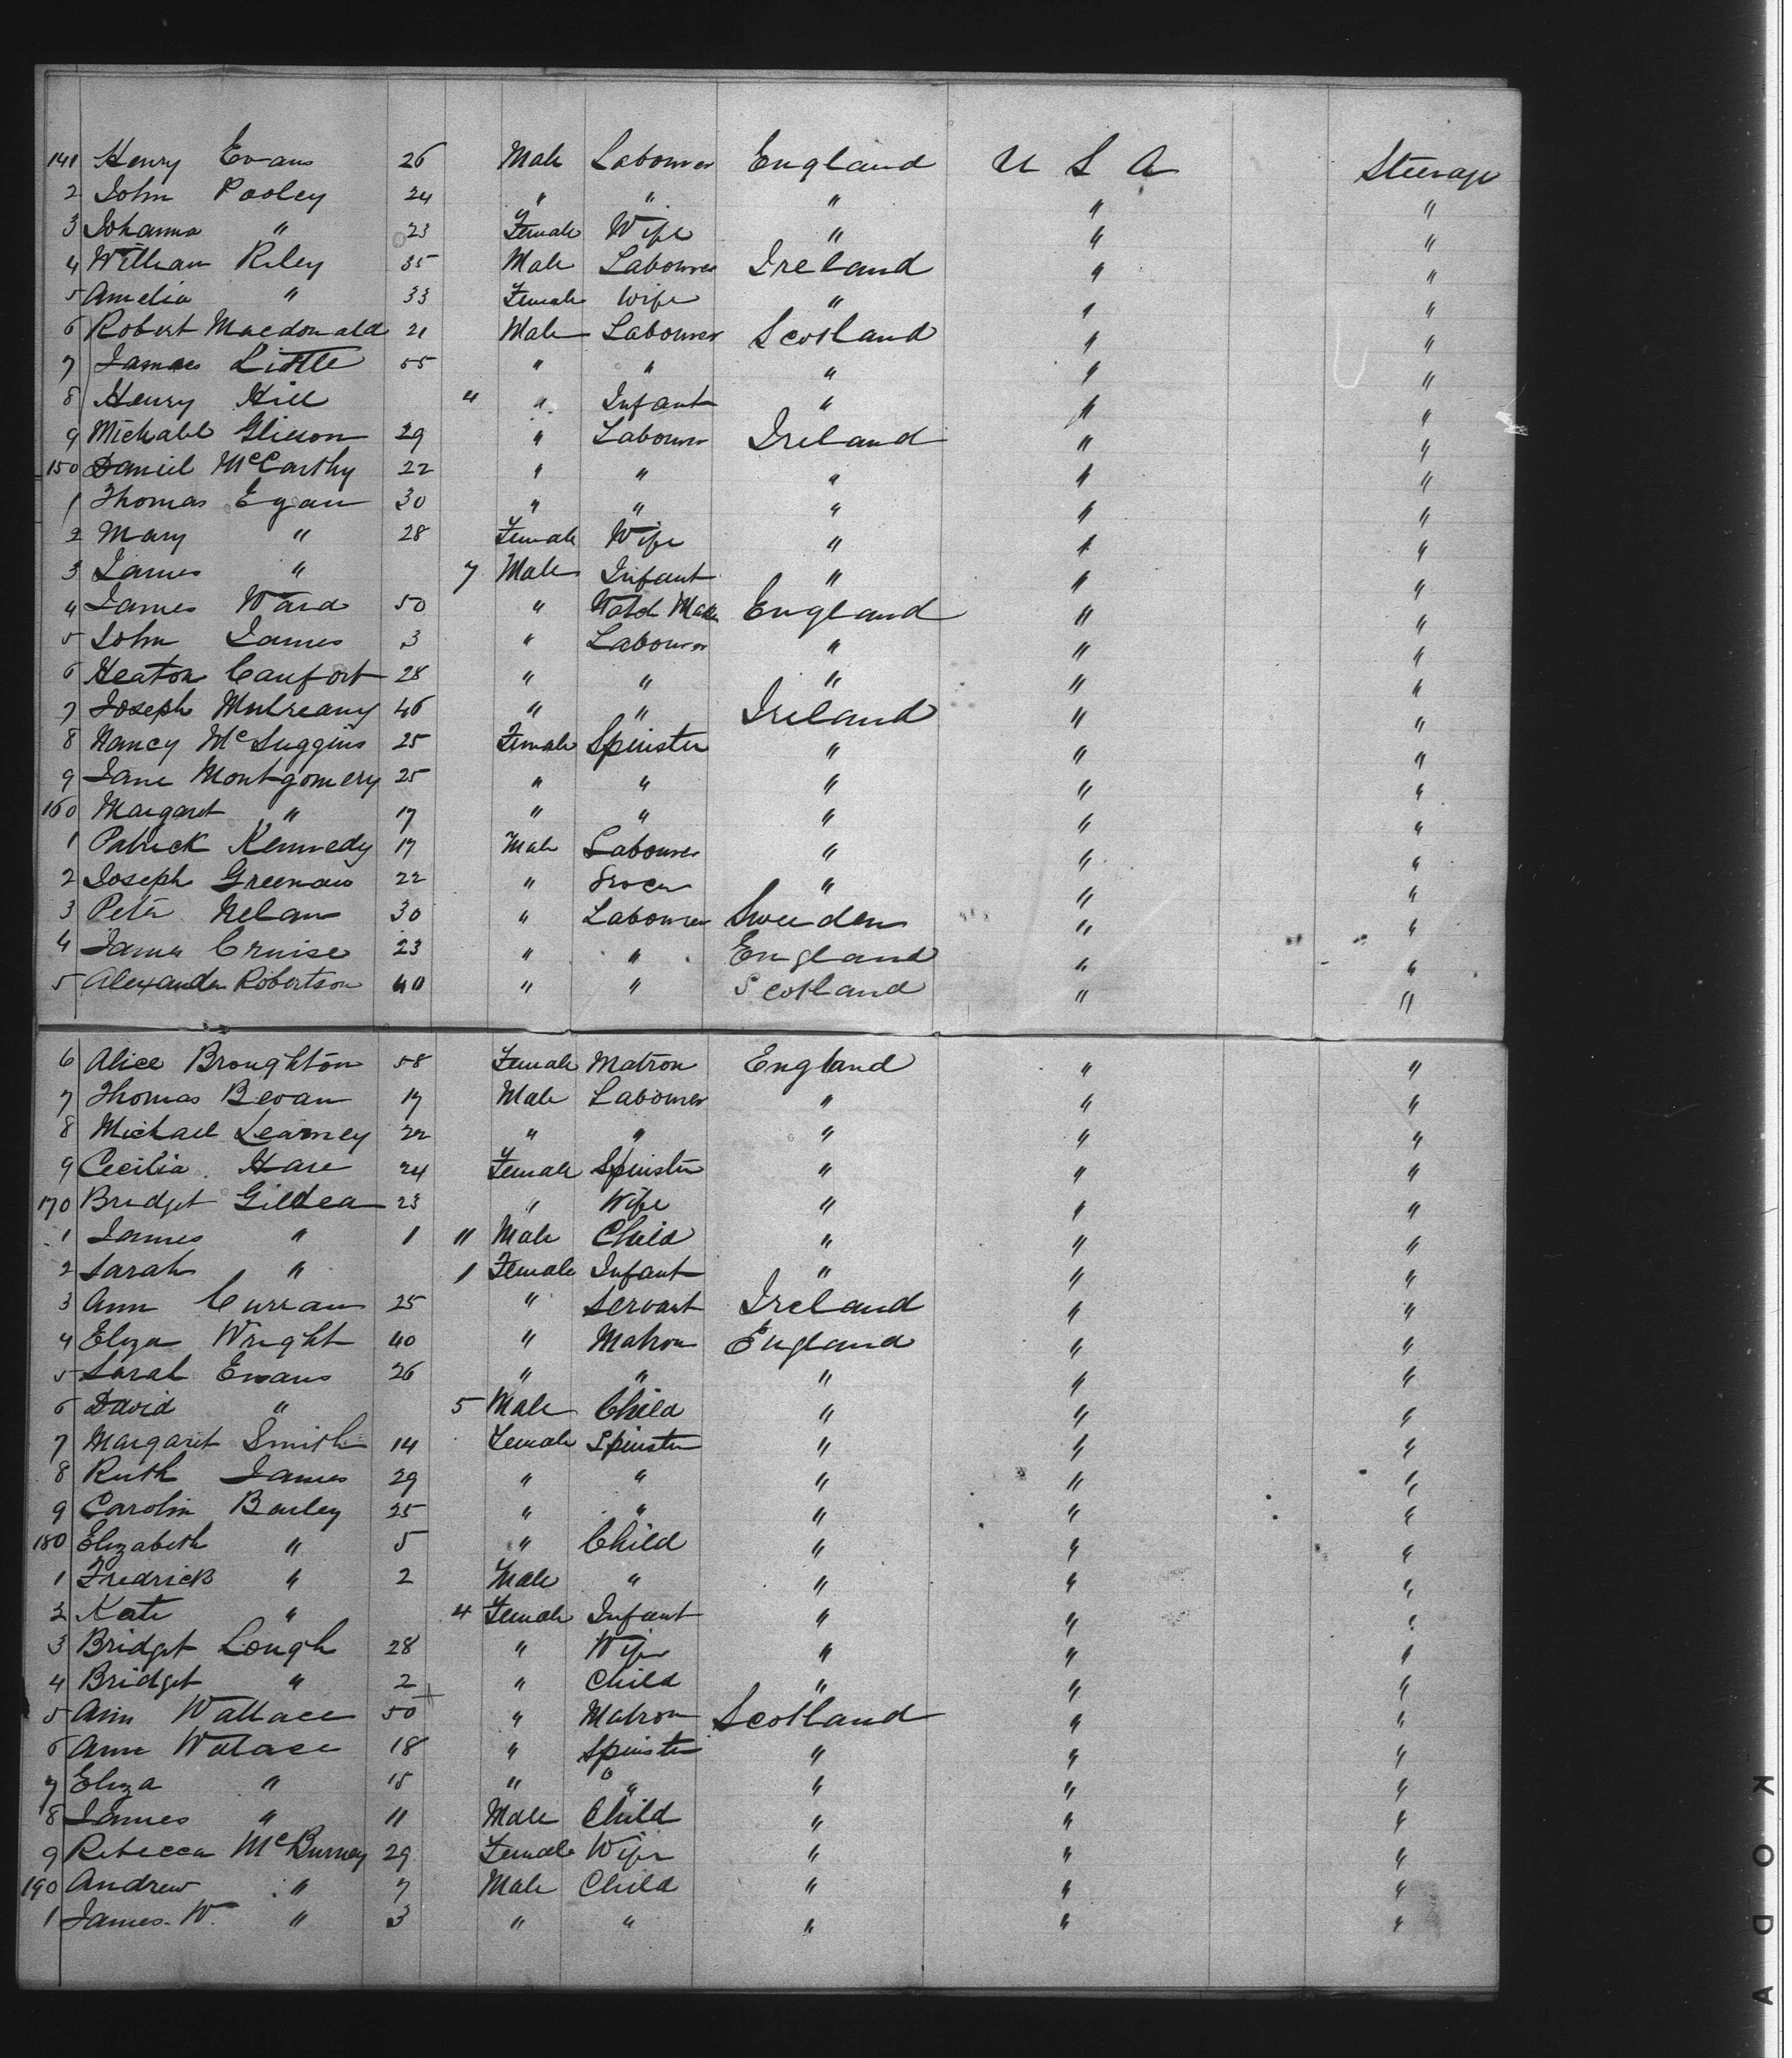 141 Henry Evans 26 Male Labourer England U S A Steerage
2 John Pooley 24 " " " " "
3 Johanna " 23 Female Wife " " "
4 William Riley 35 Male Labourer Ireland " "
5 Amelia " 33 Female Wife " " "
6 Robert Macdonald 21 Male Labourer Scotland " "
7 James Little 55 " " " " "
8 Henry Hill 4 " Infant " " "
9 Michael Glieson 29 " Labourer Ireland " "
150 Daniel McCarthy 22 " " " " "
1 Thomas Egan 30 " " " " "
2 Mary " 28 Female Wife " " "
3 James " 7 Male Infant " " "
4 James Ward 50 " Watch Maker England " "
5 John James 3 " Labourer " " "
6 Heaton Canfort 28 " " " " "
7 Joseph Mulreany 46 " " Ireland " "
8 Nancy 25 Female Spinster " " "
9 Jane Montgomery 25 " " " " "
160 Margaret " 17 " " " " "
1 Patrick Kennedy 17 Male Labourer " " "
2 Joseph Greenan 22 " Grocer " " "
3 Peter Nelan 30 " Labourer Sweeden " "
4 James Cruise 23 " " England " "
5 Alexander Robertson 40 " " Scotland " "
6 Alice Broughton 58 Female Matron England " "
7 Thomas Bevan 17 Male Labourer " " "
8 Michael Learney 22 " " " " "
9 Cecilia Hare 24 Female Spinster " " "
170 Bridget Gildea 23 " Wife " " "
1 James " 1 11 Male Child " " "
2 Sarah " 1 Female Infant " " "
3 Ann Curran 25 " Servant Ireland " "
4 Eliza Wright 40 " Matron England " "
5 Sarah Evans 26 " " " " "
6 David " 5 Male Child " " "
7 Margaret Smith 14 Female Spinster " " "
8 Ruth James 29 " " " " "
9 Carolin Barley 25 " " " " "
180 Elizabeth " 5 " Child " " "
1 Fredrick " 2 Male " " " "
2 Kate " 4 Female Infant " " "
3 Bridget Lough 28 " Wife " " "
4 Bridget " 2 " Child " " "
5 Ann Wallace 50 " Matron Scotland " "
6 Ann Wallace 18 " Spinster " " "
7 Eliza " 15 " " " " "
8 James " 11 Male Child " " "
9 Rebecca McBurney 29 Female Wife " " "
190 Andrew " 7 Male Child " " "
1 James. W. " 3 " " " " "
KODA